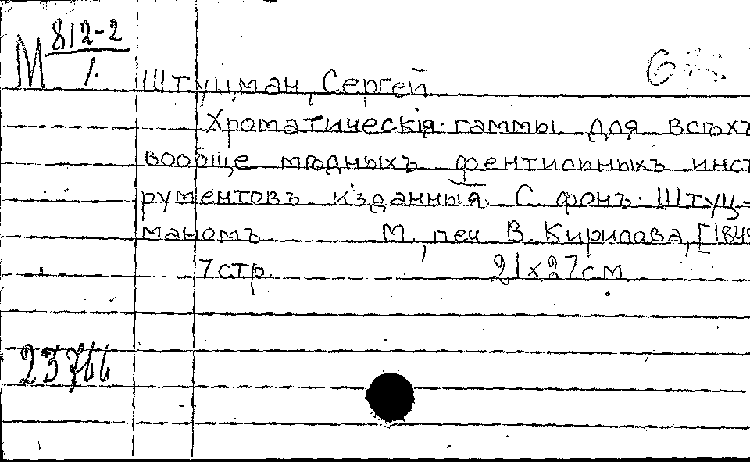 М 812-2
1.
Штуцман, Сергей
Хроматическія гаммы для всѣхъ
вообще мѣдныхъ фентильныхъ инст
рументовъ изданныя С. фонъ Штуц-
маномъ М., печ В. Кирилова, [184
7 стр. 21х27см